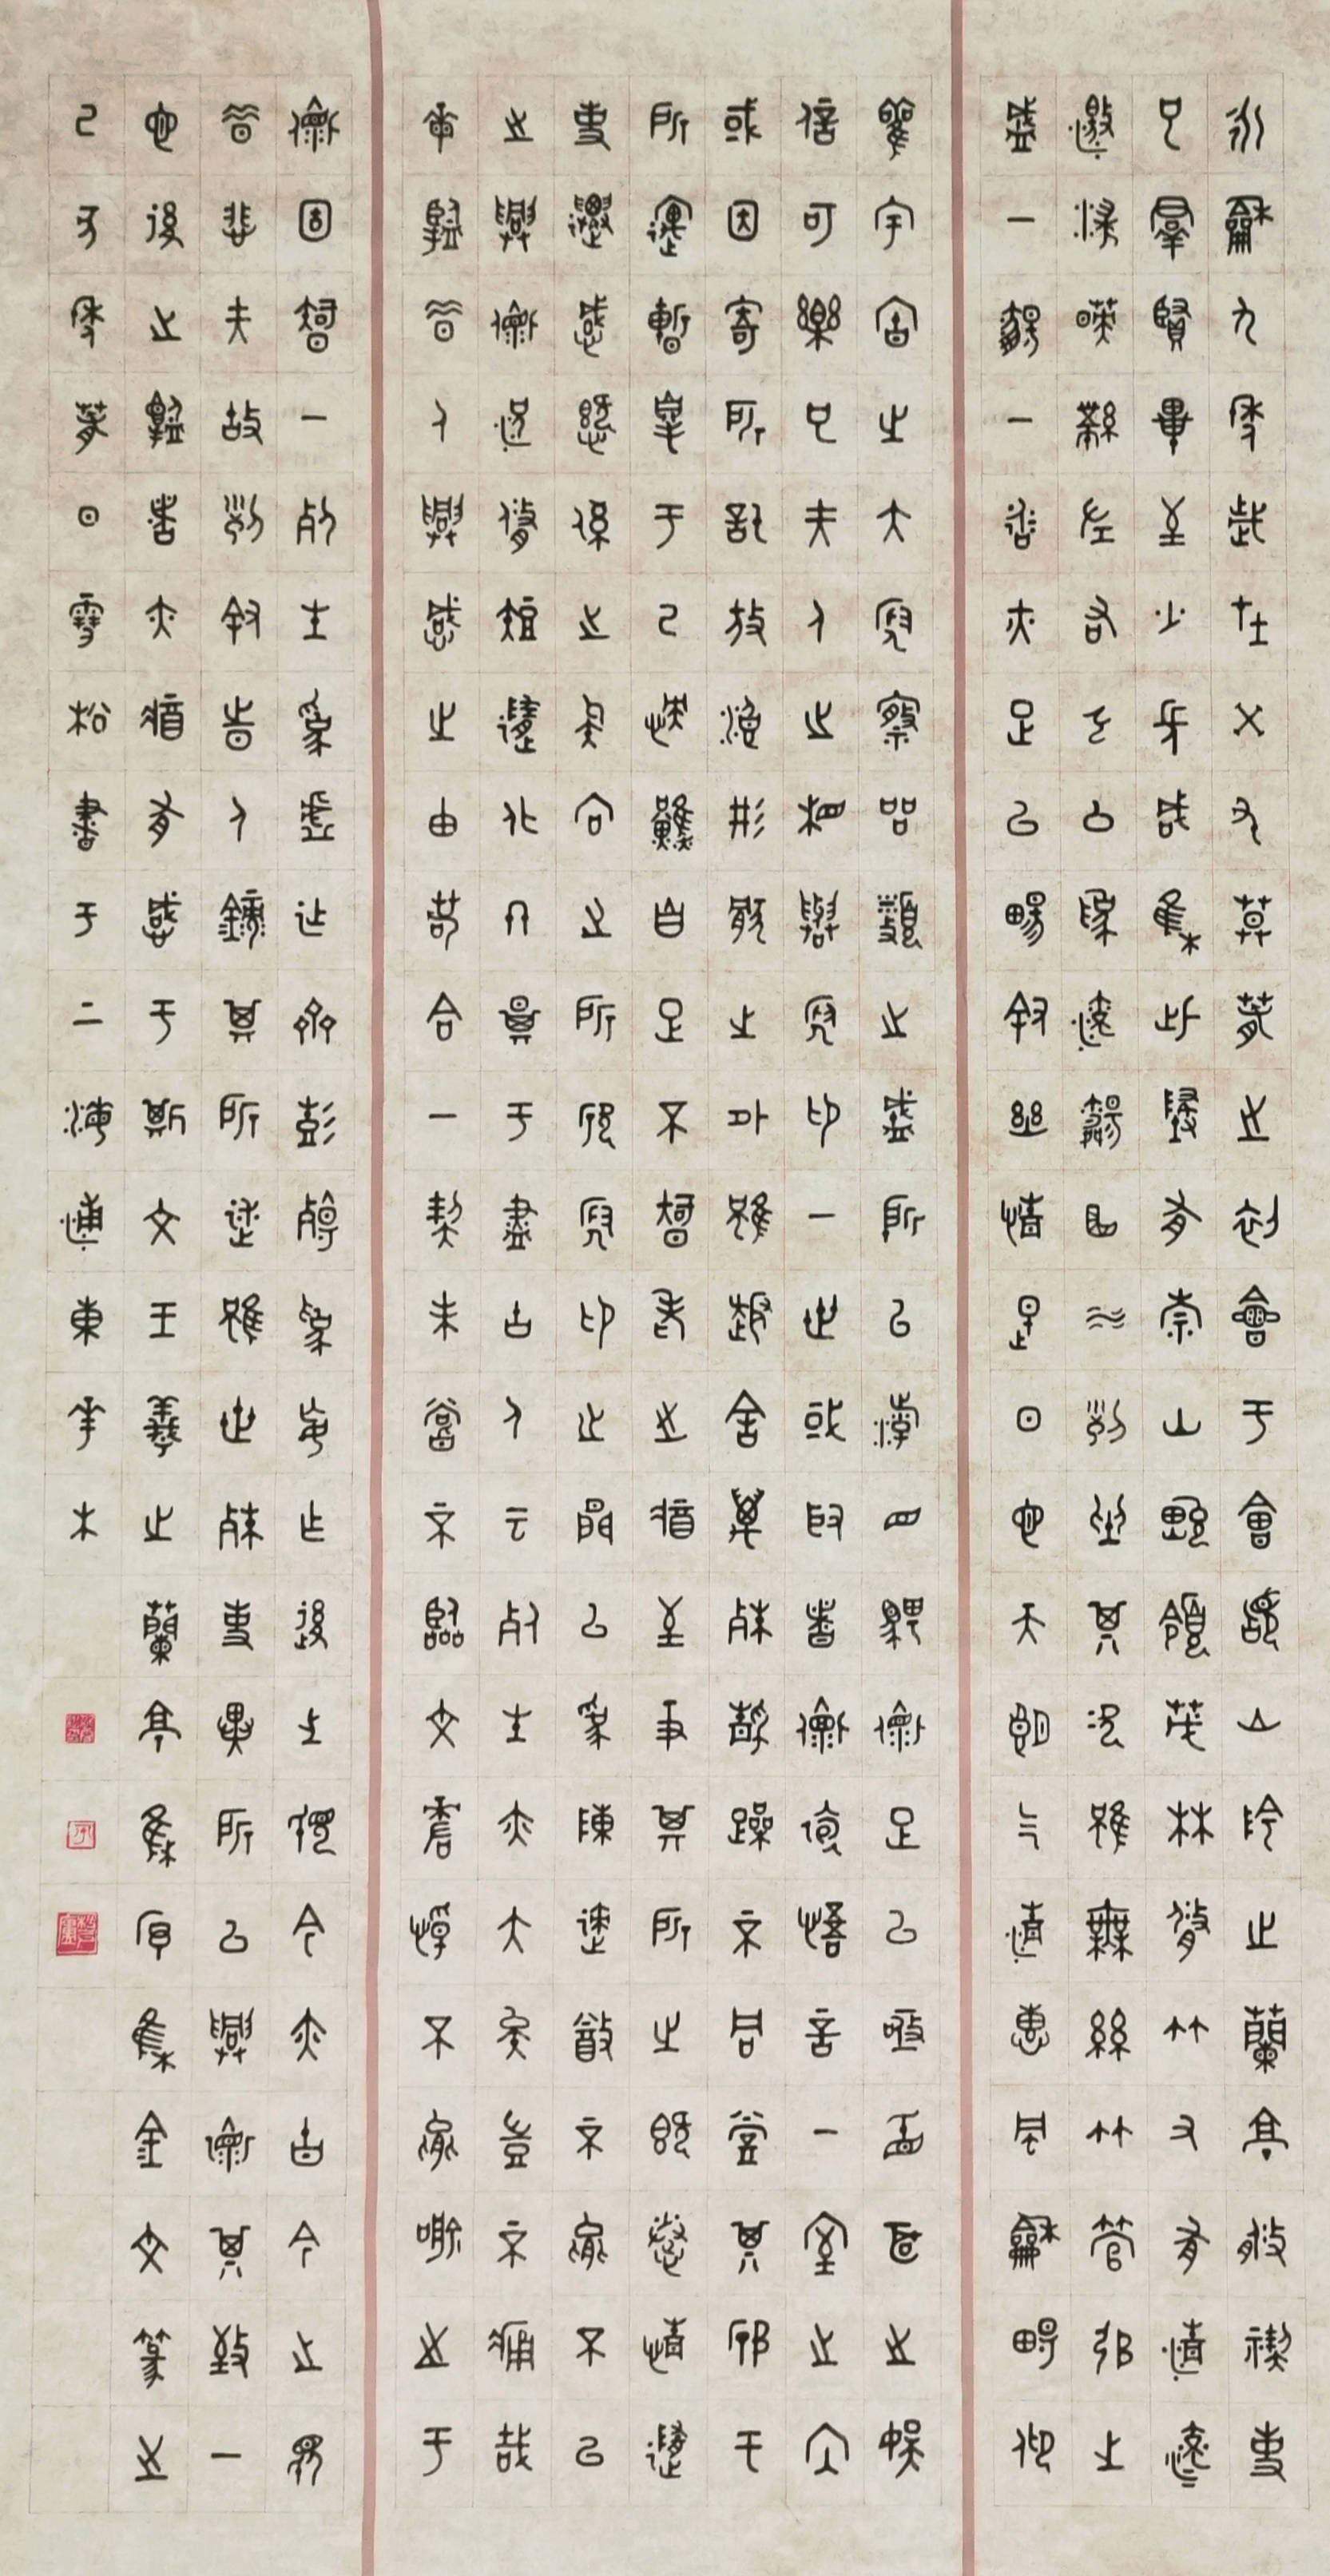 永龢九年歲在癸丑暮春之初會于會稽山陰之蘭亭修禊事
也群賢畢至少長咸集此地有崇山峻領茂林修竹又有清流
激湍映帶左右引以為流觴曲水列坐其次雖無絲竹管弦之
盛一觴一詠亦足以暢敘幽情是日也天朗氣清惠風龢暢仰
觀宇宙之大俯察品類之盛所以遊目騁懷足以極視聽之娛
信可樂也夫人之相與俯仰一世或取諸懷抱悟言一室之內
或因寄所託放浪形骸之外雖趣舍萬殊靜躁不同當其欣于
所遇暫得于己快然自足不知老之將至及其所之既倦情隨
事遷感慨係之矣向之所欣俯仰之間以為陳迹猶不能不以
之興懷況修短隨化終期于盡古人云死生亦大矣豈不痛哉
每覽昔人興感之由若合一契未嘗不臨文嗟悼不能喻之于
懷固知一死生為虛誕齊彭殤為妄作後之視今亦由今之視
昔悲夫故列敘時人錄其所述雖世殊事異所以興懷其致一
也後之覽者亦將有感于斯文王羲之蘭亭集序集金文篆之
己亥年春日雪松書于上海浦東花木